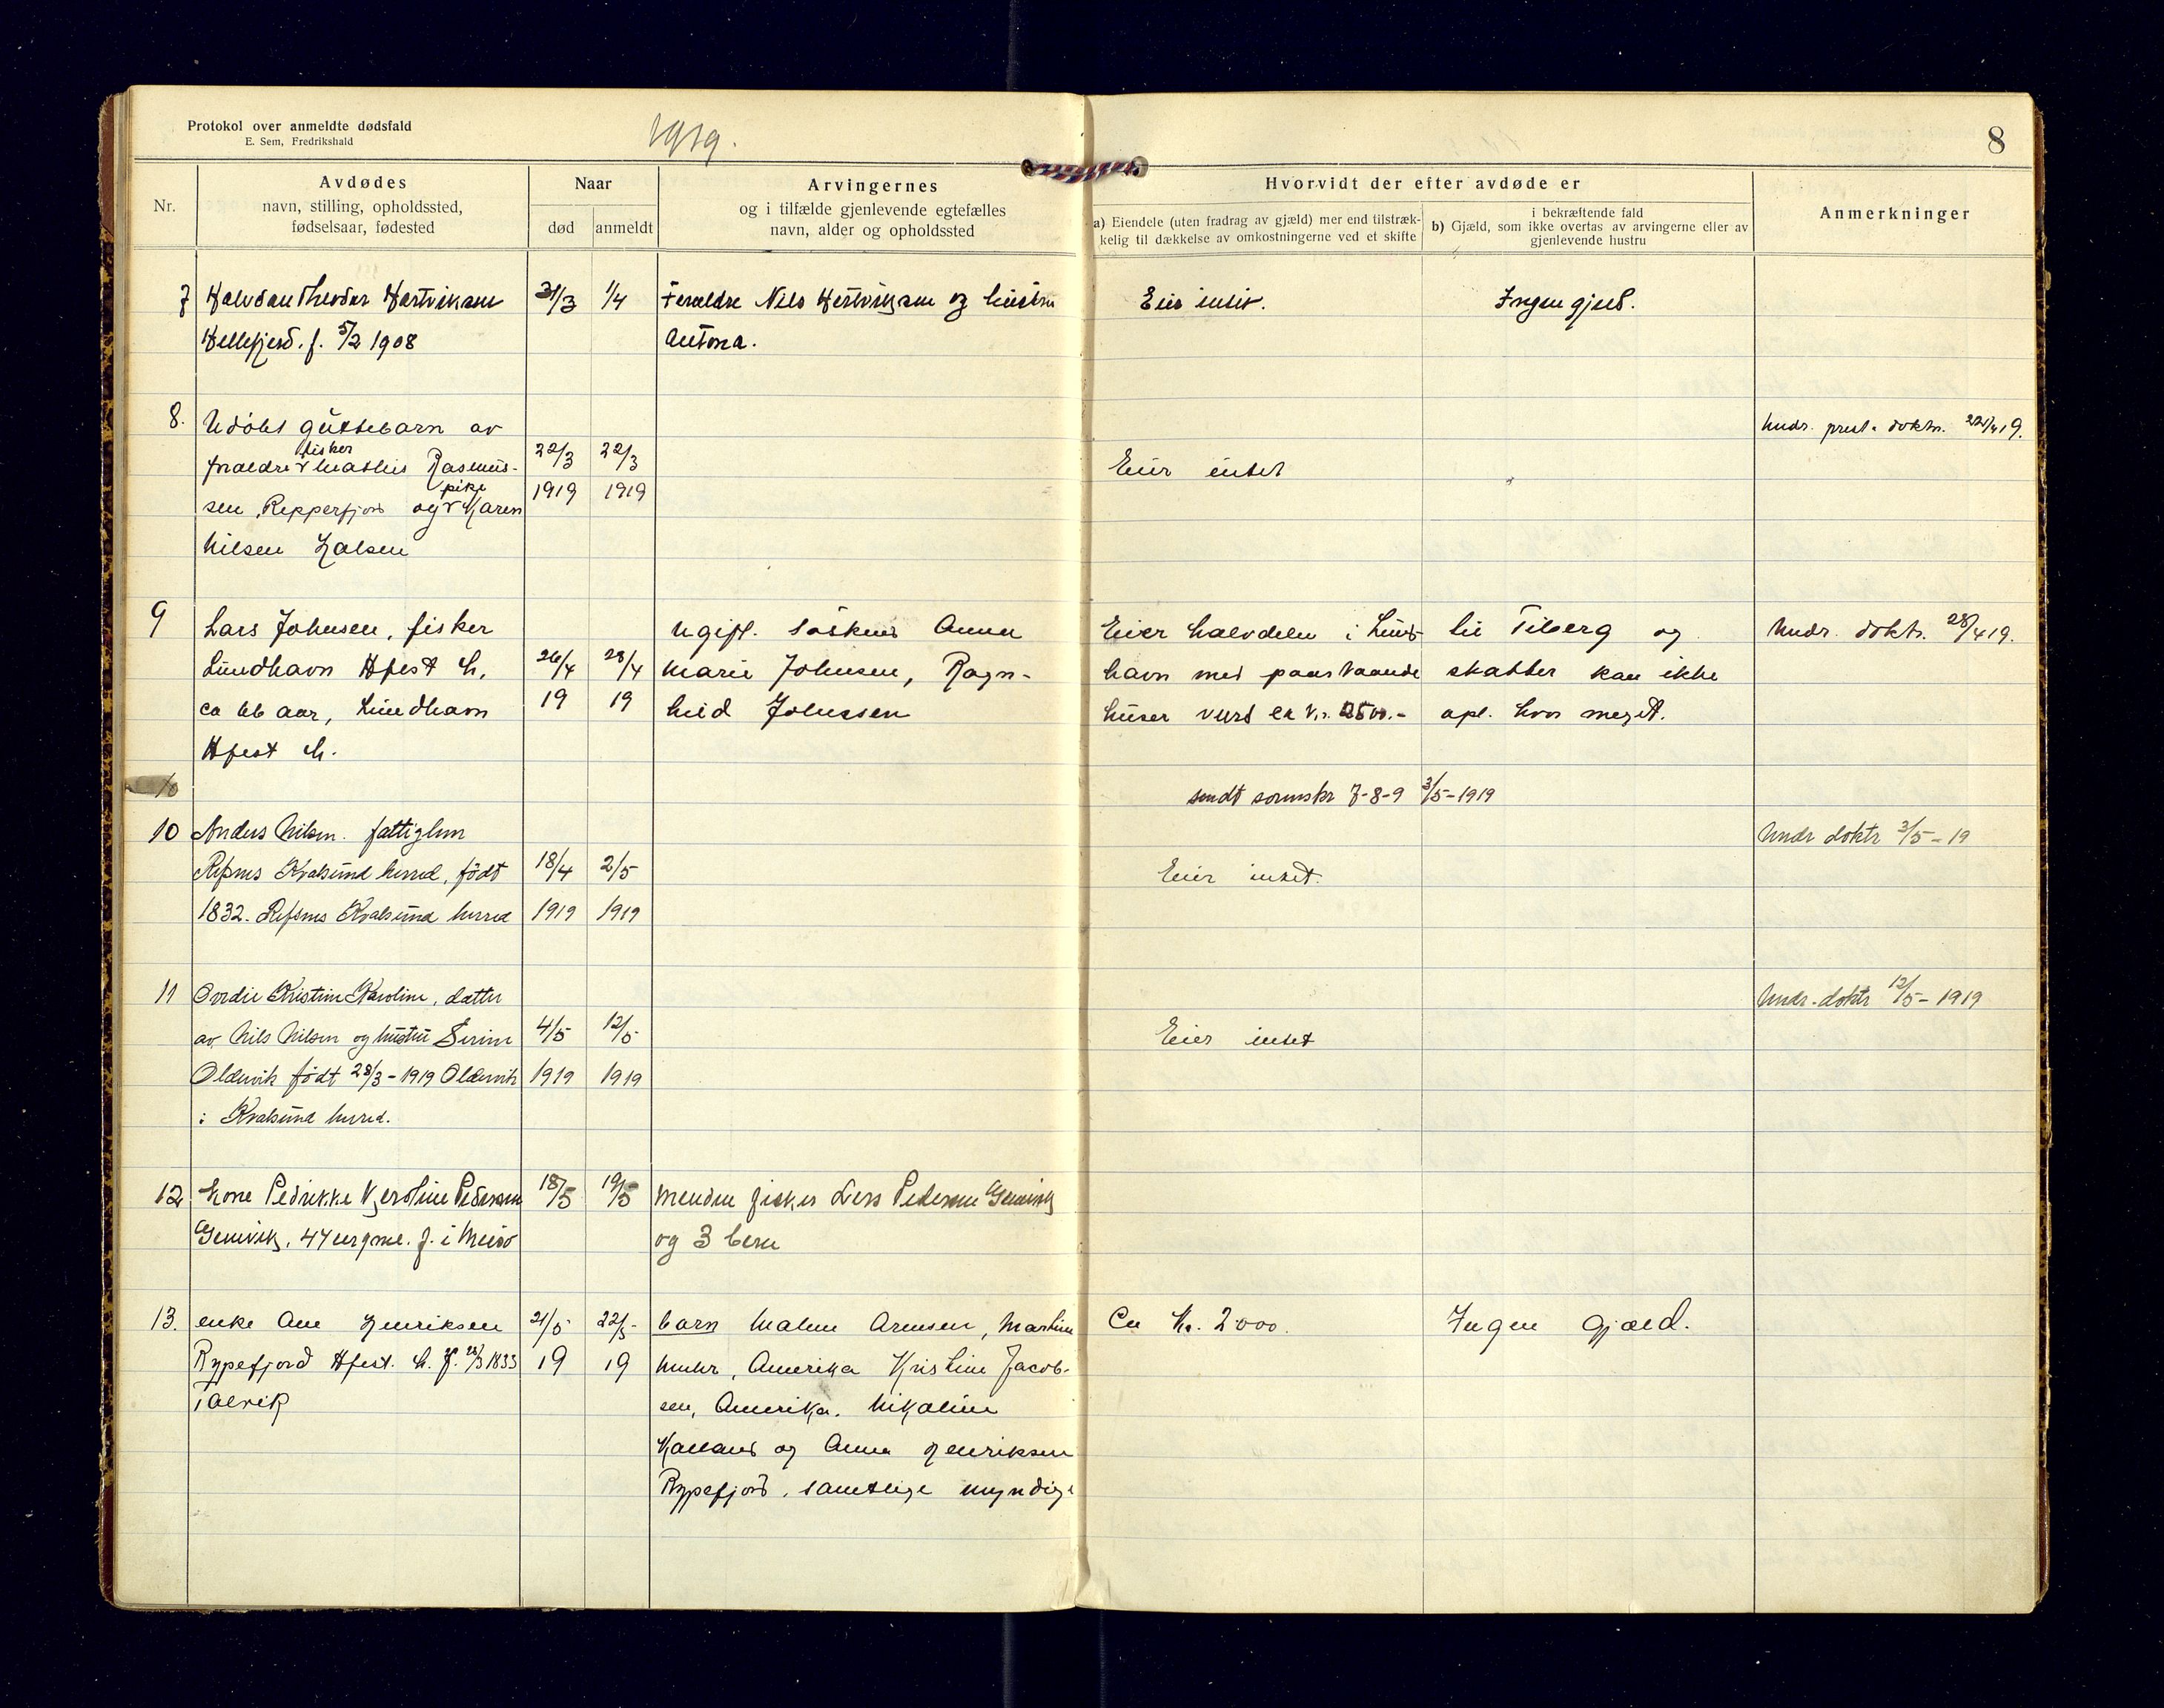 Protokol over anmeldte dødsfald
E. Sem, Fredrikshald
1919.
8
Nr.
Avdødes
navn, stilling, opholdssted,
fødselsaar, fødested
Naar
død
anmeldt
Arvingernes
og i tilfælde gjenlevende egtefælles
navn, alder og opholdssted
Hvorvidt der efter avdøde er
a) Eiendele (uten fradrag av gjæld) mer end tilstræk-
kelig til dækkelse av omkostningerne ved et skifte
i bekræftende fald
b) Gjæld, som ikke overtas av arvingerne eller av
gjenlevende hustru
Anmerkninger
7 Halvdan Theodor Hartviksen 31/3 1/4 Foraldre Nils Hartviksen og hustru Eier intet. Ingen gjeld.
Hellefjord. f. 5/2 1908 Antona.
8. Udöbt guttebarn av Undr. prest. doktr. 22/4 19.
fisker
foraldre v Mathis Rasmus- 22/3 22/3 Eier intet
pike
sen, Repperfjord og v Karen 1919 1919
Nilsen
9 Lars Johnsen, fisker ugift. Söskend Anna Eier halvdelen i Lund- til Tiberg og Undr. doktr. 28/4 19.
Lundhavn Hfest h. 26/4 28/4 Marie Johnsen, Ragn- havn med paastaaende skatter kan ikke
ca 66 aar, Lundhavn 19 19 hild Johnsen huser verd ca kr. 2500.- opl. hvor meget.
Hfest h.
sendt sorenskr 7-8-9 3/5-1919
10 Anders Nilsen. fattiglem Undr doktr 3/5-19
Refsnes Kvalsund herred, födt 18/4 2/5 Eier intet.
1832. Refsnes Kvalsund herred 1919 1919
11 Ovedie Kristine Karoline, datter Undr. doktr 12/5-1919
av Nils Nilsen og hustru Serine 4/5 12/5 Eier intet
Oldervik födt 28/3-1919 Oldervik 1919 1919
i Kvalsund herred.
12 Kone Pedrikke Karoline Pedersen 18/5 19/5 Manden fisker Lars Pedersen Genvik
Genvik, 44 aar gml. f. i og 3 barn
13. enke Ane Henriksen 21/5 22/5 barn Malene Arnesen, Martine Ca kr. 2000. Ingen gjæld.
Rypefjord Hfest. h. f. 1833 19 19 Amerika Kristine Jacob-
Talvik sen, Amerika. Nikoline
og Anna Henriksen
Rypefjord, samtlige myndige